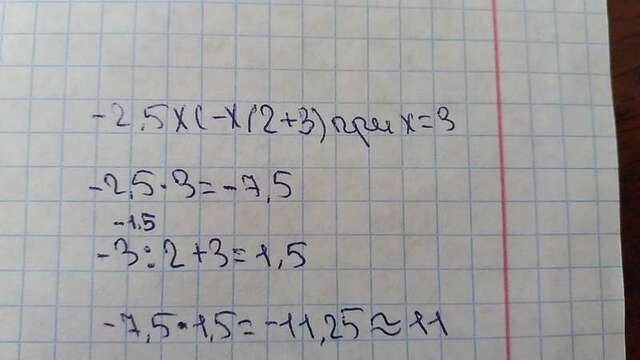 -2,5x(-x(2+3) при x=3
-2,5·3=-7,5
-1,5
-3:2+3=1,5
-7,5·1,5=-11,25≈11